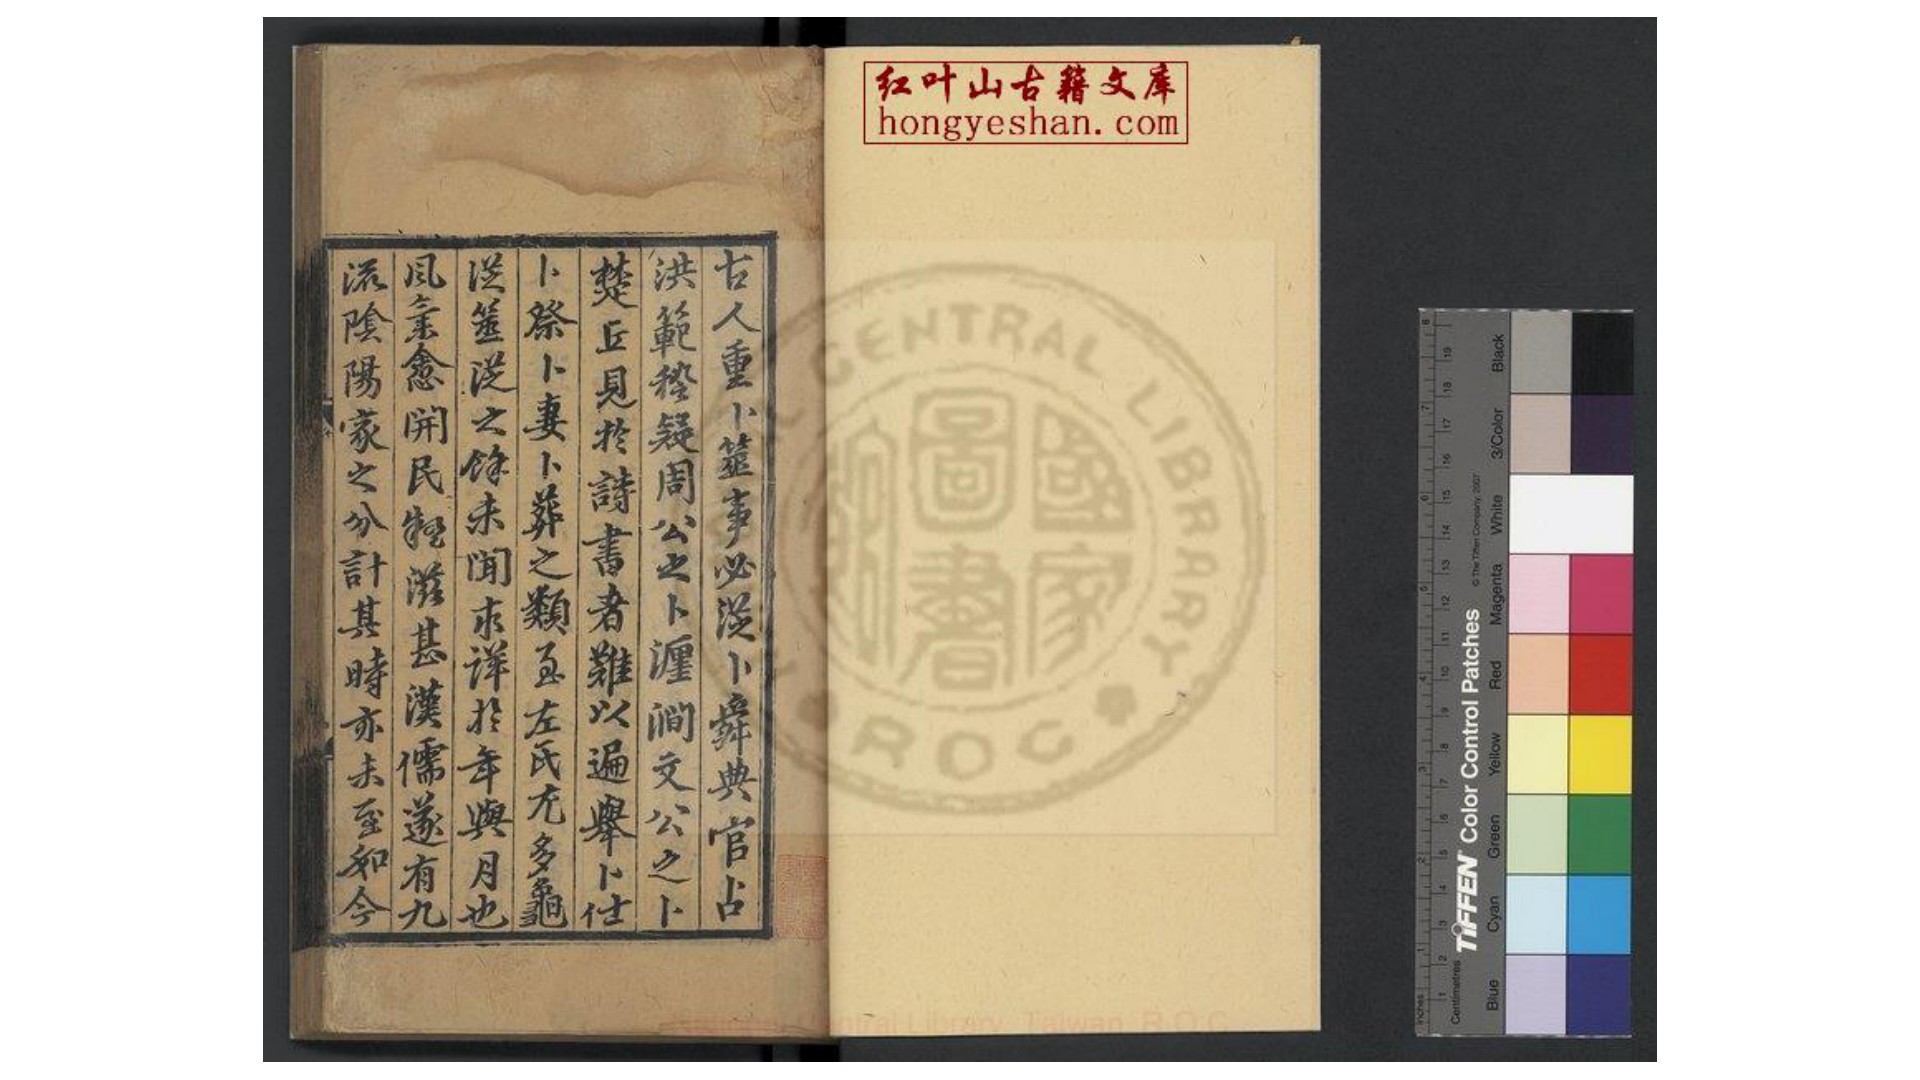 红叶山古籍文库
hongyeshan.com
古人重卜筮事必從卜舜典官占
洪範稽疑周公之卜瀍澗文公之卜
楚丘見於詩書者難以遍舉卜仕
卜祭卜妻卜葬之類至左氏尤多龜
從筮從之餘未聞求詳於年與月也
風氣愈開民滋甚漢儒遂有九
流陰陽家之分計其時亦未至如今
CENTRAL LIBRARY
ROC
國家圖書
Central Library, Taiwan, R.O.C.
TIFFEN Color Control Patches
© The Tiffen Company, 2007
Inches
Centimetres
Blue
Cyan
Green
Yellow
Red
Magenta
White
3/Color
Black